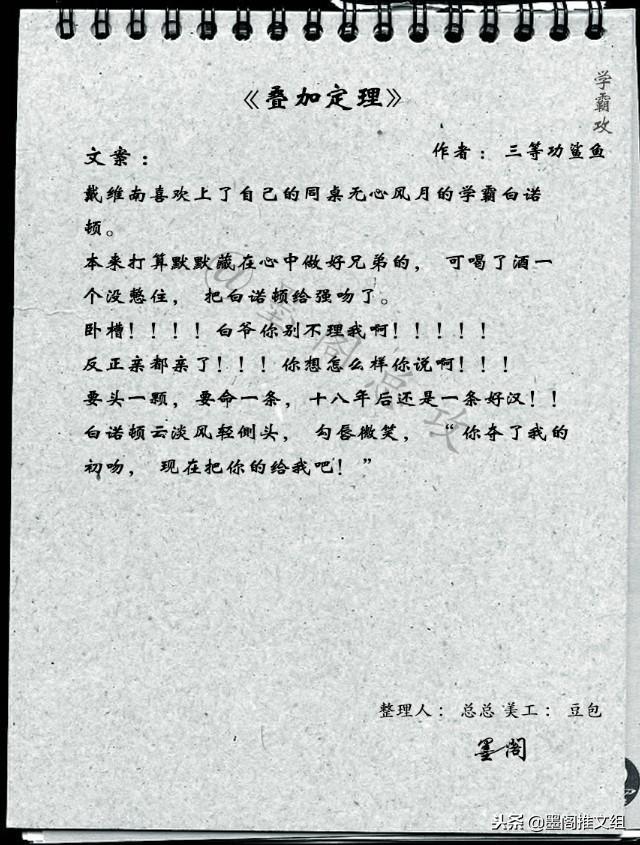 《叠加定理》
学霸攻
作者：三等功鲨鱼
文案：
戴维南喜欢上了自己的同桌无心风月的学霸白诺
顿。
本来打算默默藏在心中做好兄弟的，可喝了酒一
个没憋住，把白诺顿给强吻了。
卧槽！！！！白爷你别不理我啊！！！！！
反正亲都亲了！！！你想怎么样你说啊！！！
要头一颗，要命一条，十八年后还是一条好汉！！
白诺顿云淡风轻侧头，勾唇微笑，“你夺了我的
初吻，现在把你的给我吧！”
@墨阁总攻
整理人：总总 美工：豆包
墨阁
头条@墨阁推文组